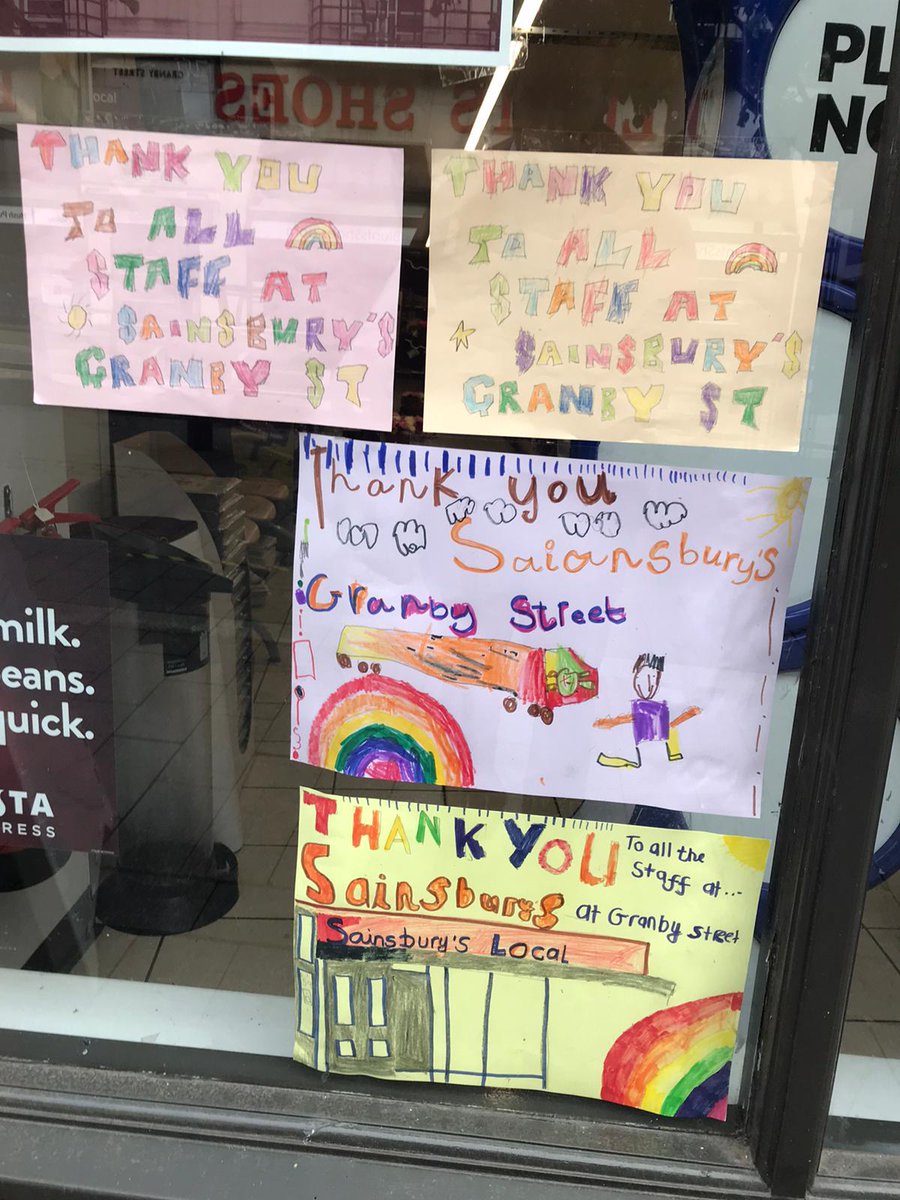 GRANBY STREET
ocal
SHOES
PL
NO
THANK YOU
TO ALL
STAFF AT
SAINSBURY'S
GRANBY ST
THANK YOU
TO ALL
STAFF AT
SAINSBURY'S
GRANBY ST
Thank you
Saiansbury's
Granby Street
milk.
eans.
quick.
STA
RESS
THANK YOU
To all the
Staff at...
Sainsburys
at Granby Street
Sainsbury's Local